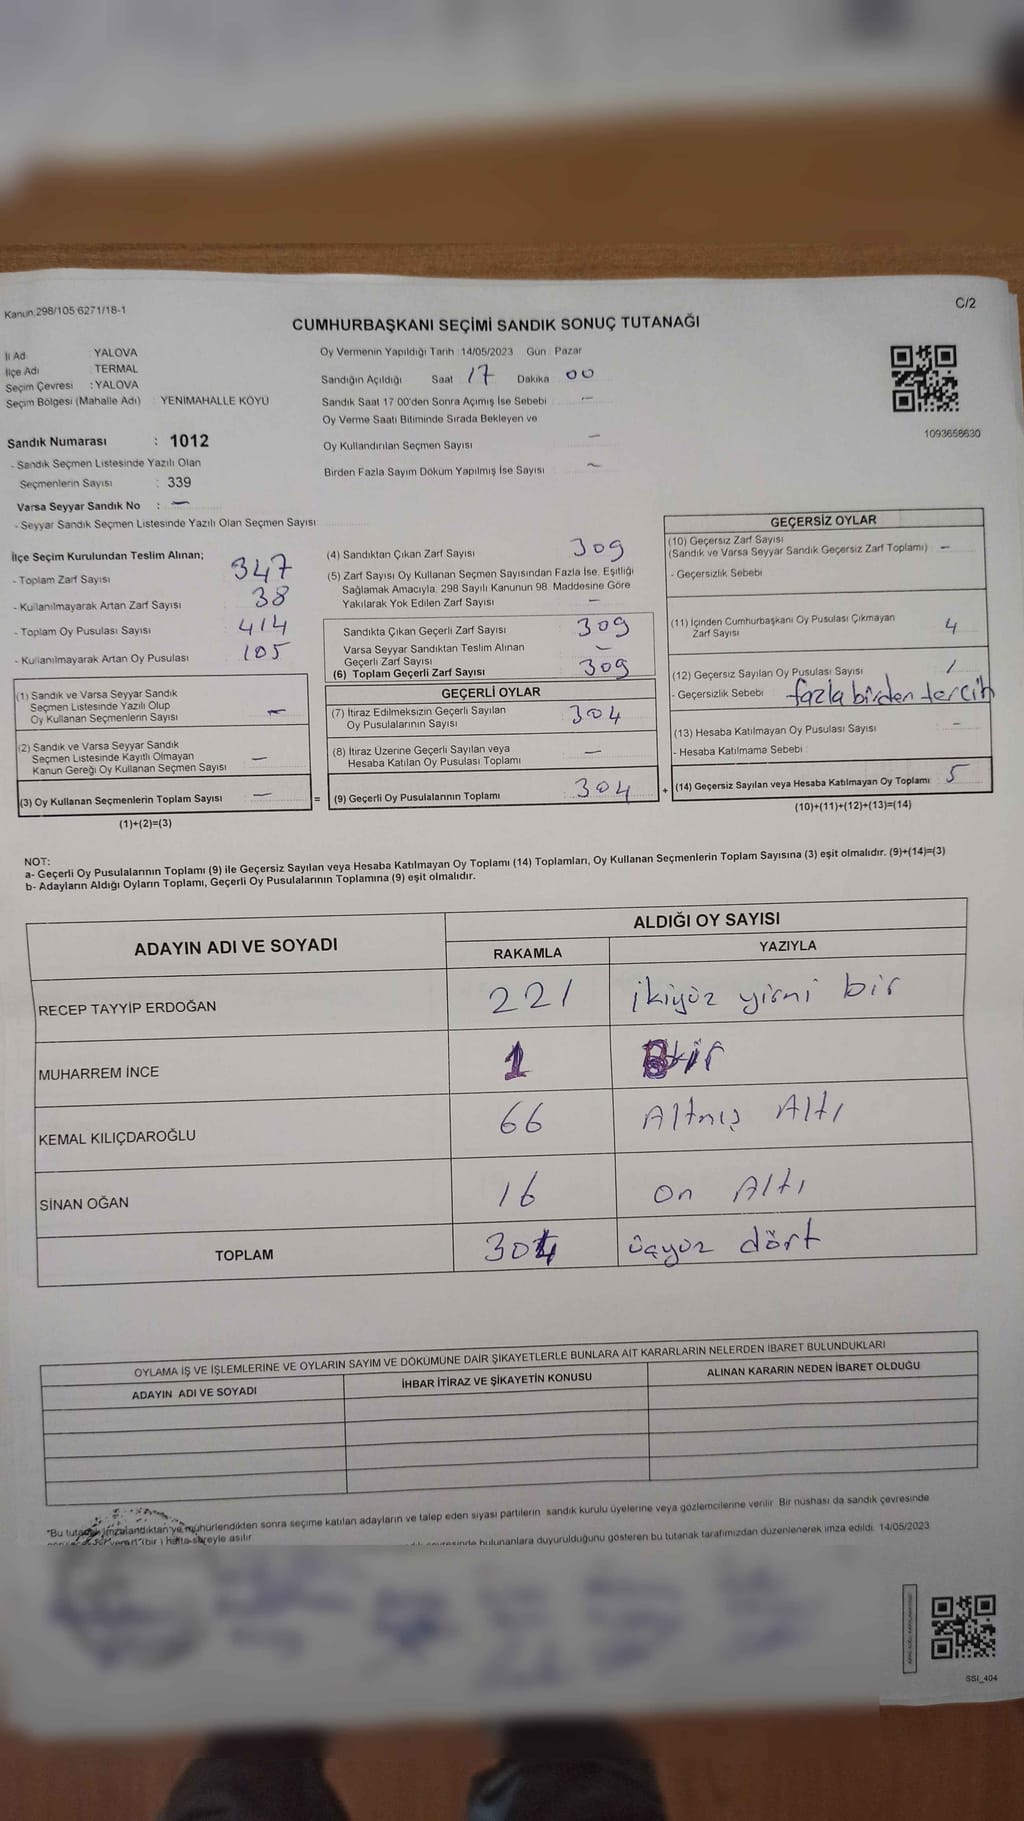 Kanun.298/105.6271/18-1
C/2
CUMHURBAŞKANI SEÇİMİ SANDIK SONUÇ TUTANAĞI
İl Adı : YALOVA
İlçe Adı : TERMAL
Seçim Çevresi : YALOVA
Seçim Bölgesi (Mahalle Adı) YENİMAHALLE KÖYÜ
Oy Vermenin Yapıldığı Tarih :14/05/2023 Gün : Pazar
Sandığın Açıldığı Saat 17 Dakika 00
Sandık Saat 17:00'den Sonra Açımış İse Sebebi –
Oy Verme Saati Bitiminde Sırada Bekleyen ve
Oy Kullandırılan Seçmen Sayısı –
Birden Fazla Sayım Döküm Yapılmış İse Sayısı –
1093658630
Sandık Numarası : 1012
- Sandık Seçmen Listesinde Yazılı Olan
Seçmenlerin Sayısı : 339
Varsa Seyyar Sandık No : –
- Seyyar Sandık Seçmen Listesinde Yazılı Olan Seçmen Sayısı
İlçe Seçim Kurulundan Teslim Alınan;
- Toplam Zarf Sayısı 347
- Kullanılmayarak Artan Zarf Sayısı 38
- Toplam Oy Pusulası Sayısı 414
- Kullanılmayarak Artan Oy Pusulası 105
(1) Sandık ve Varsa Seyyar Sandık
Seçmen Listesinde Yazılı Olup
Oy Kullanan Seçmenlerin Sayısı –
(2) Sandık ve Varsa Seyyar Sandık
Seçmen Listesinde Kayıtlı Olmayan
Kanun Gereği Oy Kullanan Seçmen Sayısı –
(3) Oy Kullanan Seçmenlerin Toplam Sayısı – =
(1)+(2)=(3)
(4) Sandıktan Çıkan Zarf Sayısı 309
(5) Zarf Sayısı Oy Kullanan Seçmen Sayısından Fazla İse, Eşitliği
Sağlamak Amacıyla, 298 Sayılı Kanunun 98. Maddesine Göre
Yakılarak Yok Edilen Zarf Sayısı –
Sandıkta Çıkan Geçerli Zarf Sayısı 309
Varsa Seyyar Sandıktan Teslim Alınan
Geçerli Zarf Sayısı –
(6) Toplam Geçerli Zarf Sayısı 309
GEÇERLİ OYLAR
(7) İtiraz Edilmeksizin Geçerli Sayılan
Oy Pusulalarının Sayısı 304
(8) İtiraz Üzerine Geçerli Sayılan veya
Hesaba Katılan Oy Pusulası Toplamı –
(9) Geçerli Oy Pusulalarının Toplamı 304 +
GEÇERSİZ OYLAR
(10) Geçersiz Zarf Sayısı
(Sandık ve Varsa Seyyar Sandık Geçersiz Zarf Toplamı) –
- Geçersizlik Sebebi
(11) İçinden Cumhurbaşkanı Oy Pusulası Çıkmayan
Zarf Sayısı 4
(12) Geçersiz Sayılan Oy Pusulası Sayısı 1
- Geçersizlik Sebebi fazla birden tercih
(13) Hesaba Katılmayan Oy Pusulası Sayısı –
- Hesaba Katılmama Sebebi :
(14) Geçersiz Sayılan veya Hesaba Katılmayan Oy Toplamı 5
(10)+(11)+(12)+(13)=(14)
NOT:
a- Geçerli Oy Pusulalarının Toplamı (9) ile Geçersiz Sayılan veya Hesaba Katılmayan Oy Toplamı (14) Toplamları, Oy Kullanan Seçmenlerin Toplam Sayısına (3) eşit olmalıdır. (9)+(14)=(3)
b- Adayların Aldığı Oyların Toplamı, Geçerli Oy Pusulalarının Toplamına (9) eşit olmalıdır.
ADAYIN ADI VE SOYADI
ALDIĞI OY SAYISI
RAKAMLA YAZIYLA
RECEP TAYYİP ERDOĞAN 221 ikiyüz yirmi bir
MUHARREM İNCE 1 Bir
KEMAL KILIÇDAROĞLU 66 Altmış Altı
SİNAN OĞAN 16 On Altı
TOPLAM 304 üçyüz dört
OYLAMA İŞ VE İŞLEMLERİNE VE OYLARIN SAYIM VE DÖKÜMÜNE DAİR ŞİKAYETLERLE BUNLARA AİT KARARLARIN NELERDEN İBARET BULUNDUKLARI
ADAYIN ADI VE SOYADI İHBAR İTİRAZ VE ŞİKAYETİN KONUSU ALINAN KARARIN NEDEN İBARET OLDUĞU
*Bu tutanak imzalandıktan ve mühürlendikten sonra seçime katılan adayların ve talep eden siyasi partilerin sandık kurulu üyelerine veya gözlemcilerine verilir. Bir nüshası da sandık çevresinde
(bir) hafta süreyle asılır.
bulunanlara duyurulduğunu gösteren bu tutanak tarafımızdan düzenlenerek imza edildi. 14/05/2023
SSI_404